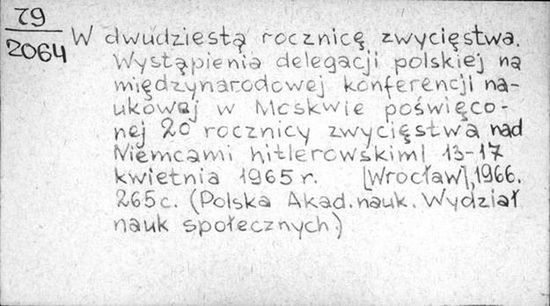 79
2064
W dwudziestą rocznicę zwycięstwa.
Wystąpienia delegacji polskiej na
międzynarodowej konferencji na-
ukowej w Moskwie poświęco-
nej 20 rocznicy zwycięstwa nad
Niemcami hitlerowskimi 13-17
kwietnia 1965 r. [Wrocław], 1966.
265 c. (Polska Akad. nauk. Wydział
nauk społecznych.)